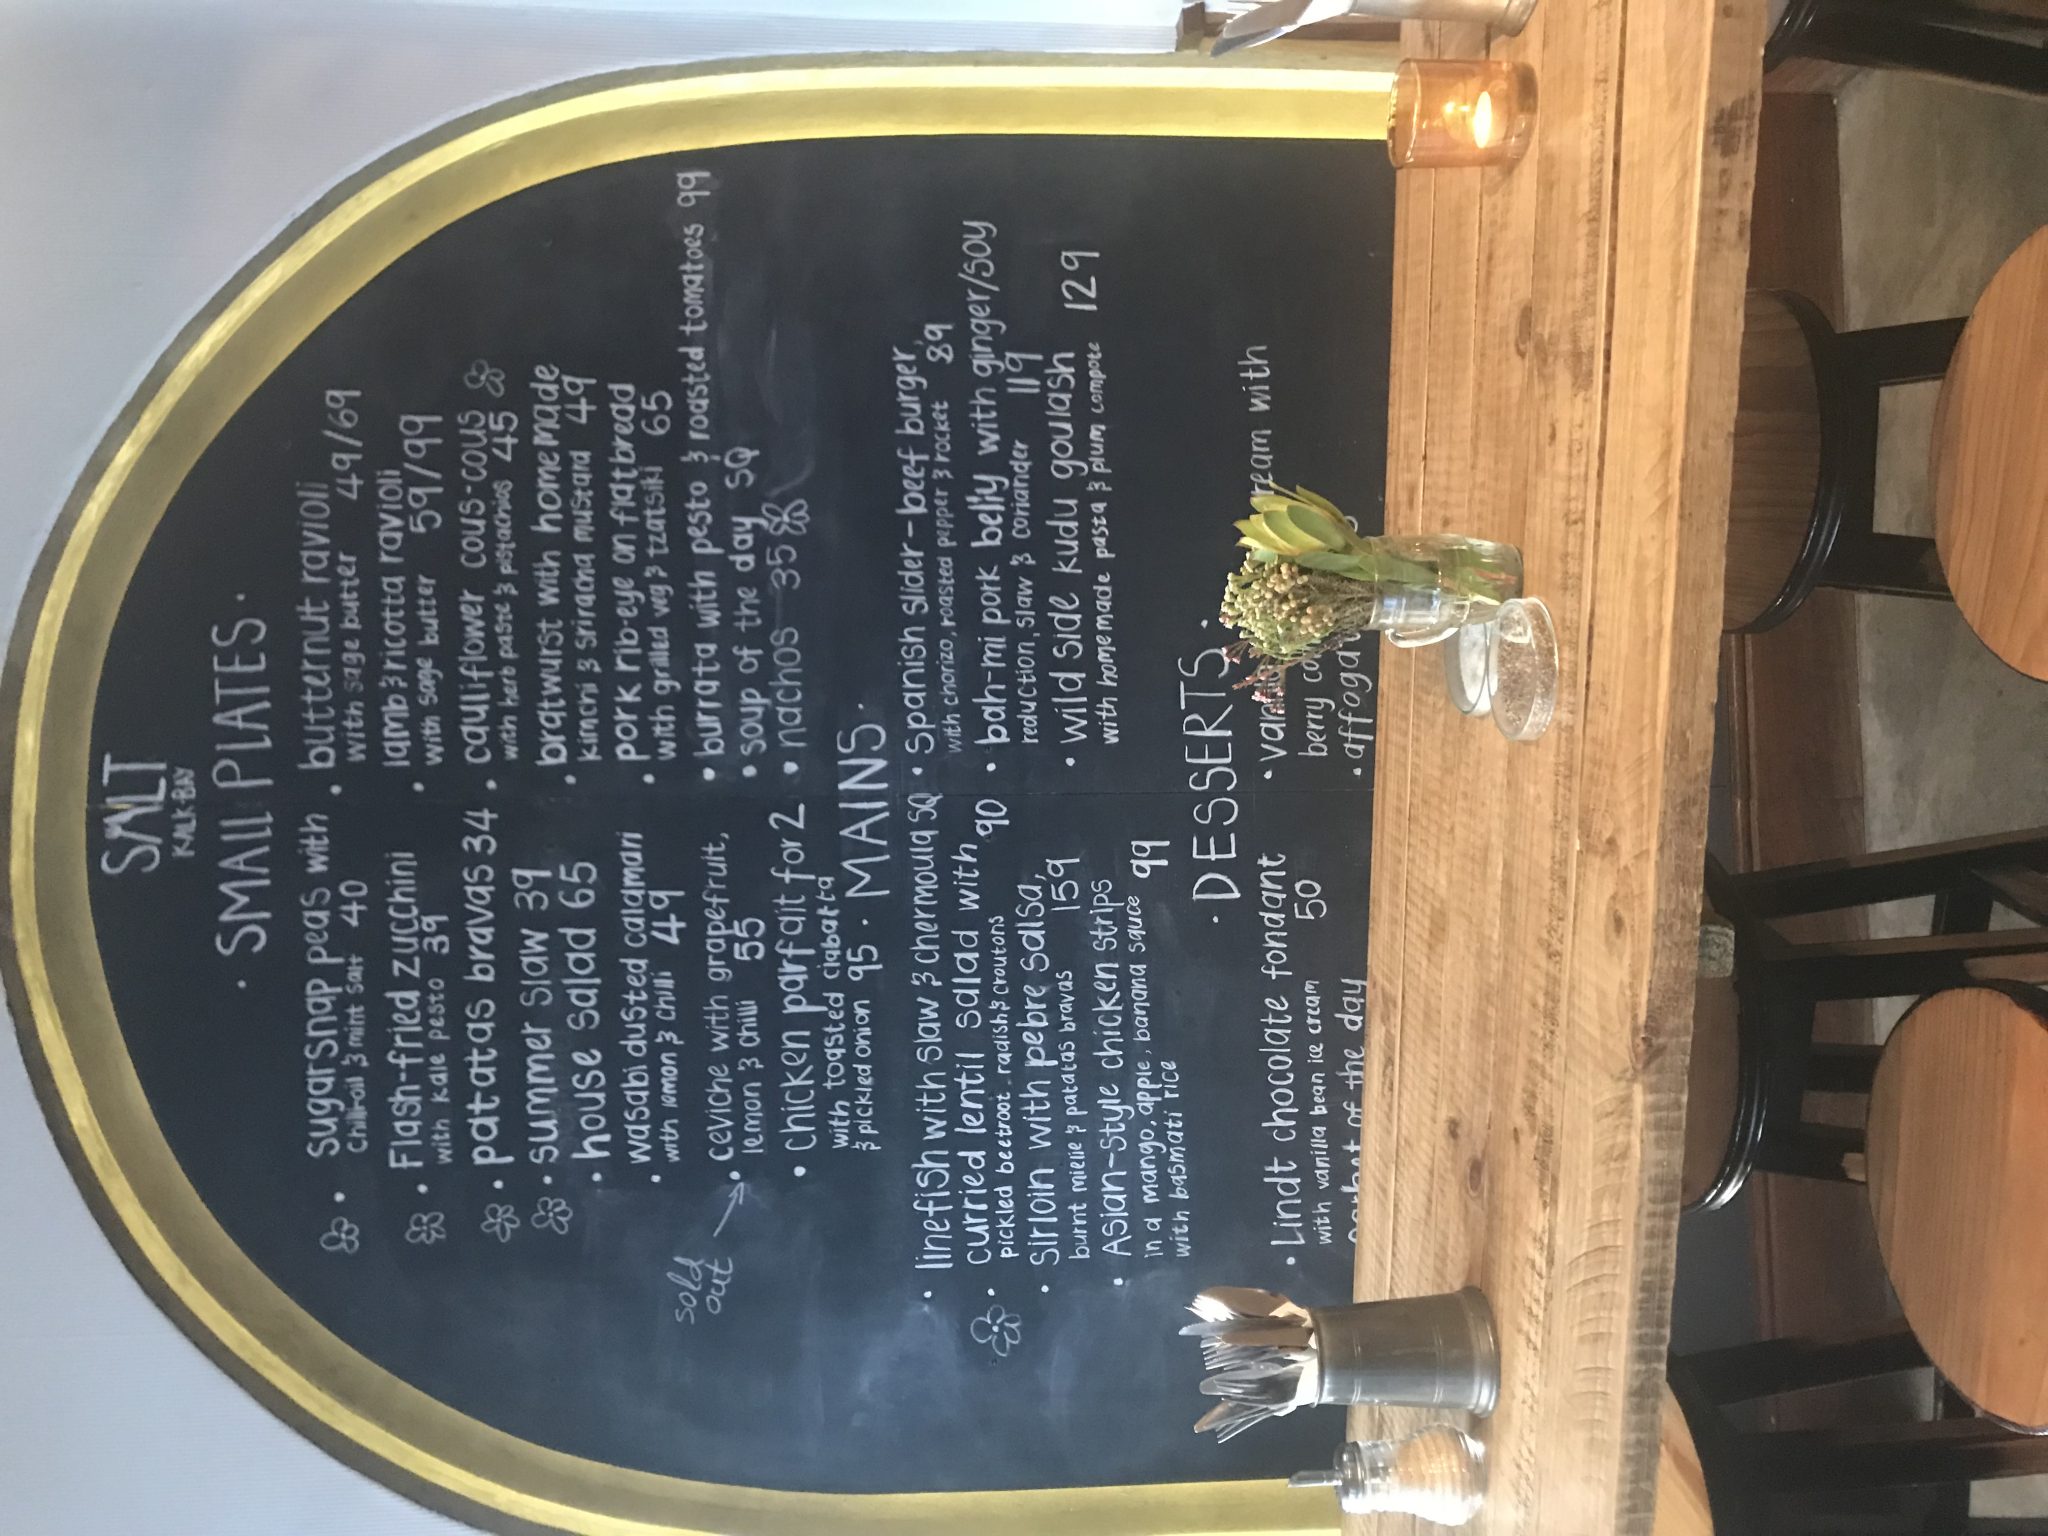 SALT
KALK-BAY
· SMALL PLATES ·
· sugarsnap peas with
chilli-oil & mint salt 40
· flash-fried zucchini
with kale pesto 39
· patatas bravas 34
· summer slaw 39
· house salad 65
· wasabi dusted calamari
with lemon & chilli 49
sold
out
· ceviche with grapefruit,
lemon & chilli 55
· chicken parfait for 2
with toasted ciabatta
& pickled onion 95
· butternut ravioli
with sage butter 49/69
· lamb & ricotta ravioli
with sage butter 59/99
· cauliflower cous-cous
with herb paste & pistachios 45
· bratwurst with homemade
kimchi & sriracha mustard 49
· pork rib-eye on flatbread
with grilled veg & tzatsiki 65
· burrata with pesto & roasted tomatoes 99
· soup of the day SQ
· nachos 35
· MAINS ·
· linefish with slaw & chermoula SQ
· curried lentil salad with
pickled beetroot, radish & croutons 90
· sirloin with pebre salsa,
burnt mielie & patatas bravas 159
· Asian-style chicken strips
in a mango, apple, banana sauce 99
with basmati rice
· Spanish slider-beef burger,
with chorizo, roasted pepper & rocket 89
· bah-mi pork belly with ginger/soy
reduction, slaw & coriander 119
· wild side kudu goulash
with homemade pasta & plum compote 129
· DESSERTS ·
· Lindt chocolate fondant
with vanilla bean ice cream 50
of the day
· van ream with
berry co
· affoga